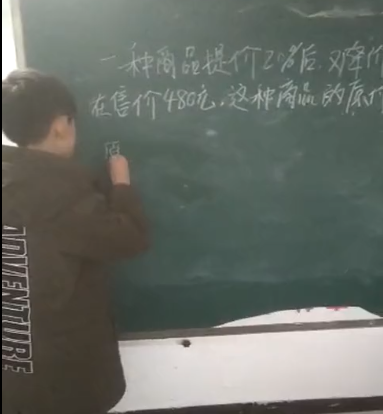 一种商品提价20%后,又降价
在售价480元,这种商品的原价
原
ADVENTURE